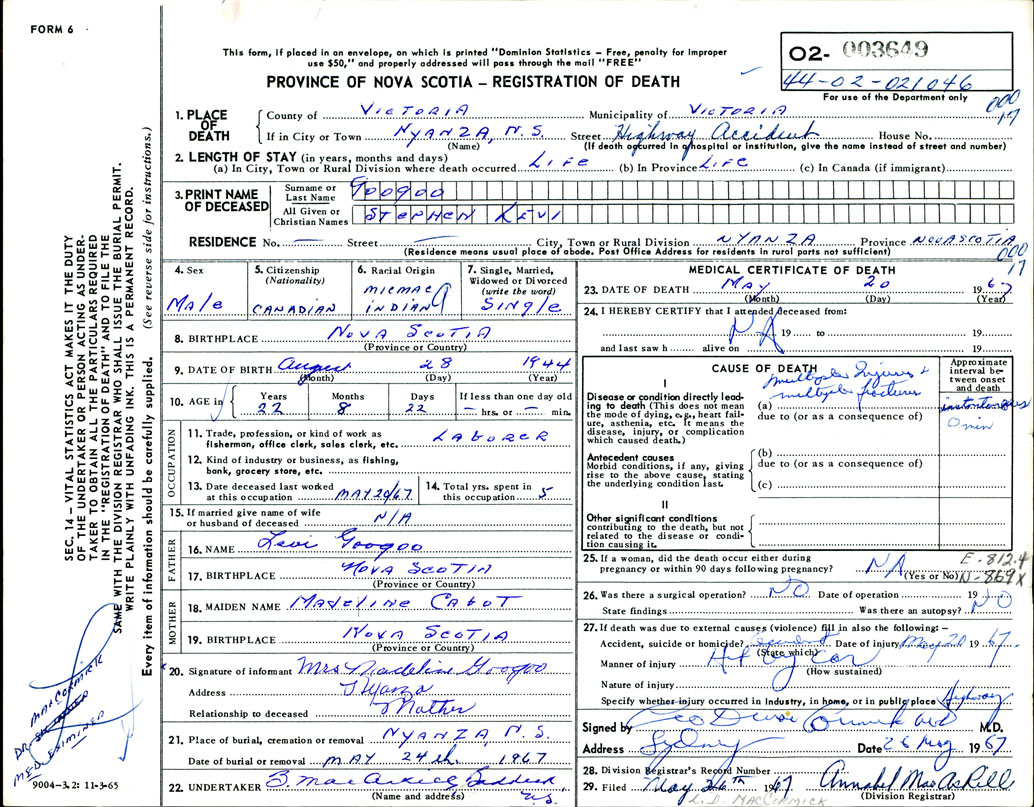 FORM 6
This form, if placed in an envelope, on which is printed "Dominion Statistics – Free, penalty for improper
use $50," and properly addressed will pass through the mail "FREE"
PROVINCE OF NOVA SCOTIA – REGISTRATION OF DEATH
02- 003649
44-02-021046
For use of the Department only
000
17
1. PLACE OF DEATH
County of VICTORIA Municipality of VICTORIA
If in City or Town NYANZA, N.S. Street Highway Accident House No.
(Name) (If death occurred in a hospital or institution, give the name instead of street and number)
2. LENGTH OF STAY (in years, months and days)
(a) In City, Town or Rural Division where death occurred LIFE (b) In Province LIFE (c) In Canada (if immigrant)
3. PRINT NAME OF DECEASED
Surname or Last Name GOOGOO
All Given or Christian Names STEPHEN LEVI
RESIDENCE No. — Street — City, Town or Rural Division NYANZA Province NOVA SCOTIA
(Residence means usual place of abode. Post Office Address for residents in rural parts not sufficient)
000
17
4. Sex Male
5. Citizenship (Nationality) CANADIAN
6. Racial Origin MICMAC INDIAN
7. Single, Married, Widowed or Divorced (write the word) SINGLE
8. BIRTHPLACE NOVA SCOTIA
(Province or Country)
9. DATE OF BIRTH August 28 1944
(Month) (Day) (Year)
10. AGE in Years 22 Months 8 Days 22 If less than one day old — hrs. or — min.
OCCUPATION
11. Trade, profession, or kind of work as fisherman, office clerk, sales clerk, etc. LABORER
12. Kind of industry or business, as fishing, bank, grocery store, etc.
13. Date deceased last worked at this occupation MAY 20/67
14. Total yrs. spent in this occupation 5
15. If married give name of wife or husband of deceased N/A
FATHER
16. NAME Levi Googoo
17. BIRTHPLACE NOVA SCOTIA
(Province or Country)
MOTHER
18. MAIDEN NAME MADELINE CABOT
19. BIRTHPLACE NOVA SCOTIA
(Province or Country)
20. Signature of informant Mrs Madeline Googoo
Address Nyanza
Relationship to deceased Mother
21. Place of burial, cremation or removal NYANZA, N.S.
Date of burial or removal MAY 24th 1967
22. UNDERTAKER B. MacAskill Baddeck N.S.
(Name and address)
MEDICAL CERTIFICATE OF DEATH
23. DATE OF DEATH MAY 20 1967
(Month) (Day) (Year)
24. I HEREBY CERTIFY that I attended deceased from:
NA 19 to 19
and last saw h alive on 19
CAUSE OF DEATH
Approximate interval between onset and death
I
Disease or condition directly leading to death (This does not mean the mode of dying, e.g., heart failure, asthenia, etc. It means the disease, injury, or complication which caused death.)
(a) multiple injuries + multiple fractures
instantaneous
0 min
due to (or as a consequence of)
Antecedent causes
Morbid conditions, if any, giving rise to the above cause, stating the underlying condition last.
(b)
due to (or as a consequence of)
(c)
II
Other significant conditions contributing to the death, but not related to the disease or condition causing it.
25. If a woman, did the death occur either during pregnancy or within 90 days following pregnancy? NA
(Yes or No)
E-812.4
N-869X
26. Was there a surgical operation? NO Date of operation 19
State findings Was there an autopsy? NO
27. If death was due to external causes (violence) fill in also the following:–
Accident, suicide or homicide? accident Date of injury May 20 1967
(State which)
Manner of injury Hit by car
(How sustained)
Nature of injury
Specify whether injury occurred in industry, in home, or in public place Highway
Signed by M.D.
Address Sydney Date 26 May 1967
28. Division Registrar's Record Number
29. Filed May 26th 1967 Annabel MacAskill
(Division Registrar)
L.D. MacCORMICK
SEC. 14 – VITAL STATISTICS ACT MAKES IT THE DUTY
OF THE UNDERTAKER OR PERSON ACTING AS UNDERTAKER
TO OBTAIN ALL THE PARTICULARS REQUIRED
IN THE "REGISTRATION OF DEATH" AND TO FILE THE
SAME WITH THE DIVISION REGISTRAR WHO SHALL ISSUE THE BURIAL PERMIT.
WRITE PLAINLY WITH UNFADING INK. THIS IS A PERMANENT RECORD.
Every item of information should be carefully supplied. (See reverse side for instructions.)
MACCORMICK
DR.
MED. EXIMINER
9004-3.2: 11-3-65